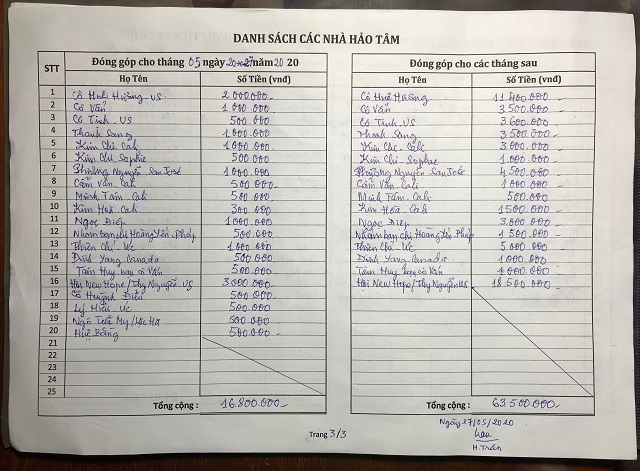 DANH SÁCH CÁC NHÀ HẢO TÂM
STT Đóng góp cho tháng 05 ngày 20→27 năm 2020
Họ Tên Số Tiền (vnđ)
1 Cô Huê Hường_US 2.000.000_
2 Cô Vấn 1 000 000_
3 Cô Tính_US 500.000_
4 Thanh Sang 1.000000_
5 Kim Chi_Cali 1.000000_
6 Kim Chi Sophie 500 000
7 Phường Nguyễn San José 1 000 000_
8 Cẩm Vân_Cali 500 000_
9 Minh Tâm_Cali 500 000_
10 Kim Hoà_Cali 300 000
11 Ngọc Điệp 1 000 000
12 Nhóm bạn chị Hoàng Yên_Pháp 500 000_
13 Thiên Chí_Úc 1 000 000
14 Dinh Yang_Canada 500 000_
15 Tám Huy bạn cô Vấn 500.000_
16 Hội New Hope/Thy Nguyễn_US 3.000000_
17 Cô Huỳnh Điểu 500 000_
18 Lý Hiếu Úc 500.000_
19 Ngô Trà My 500 000_
20 Huệ Bằng 500 000_
21
22
23
24
25
Tổng cộng : 16.800.000_
Đóng góp cho các tháng sau
Họ Tên Số Tiền (vnđ)
Cô Huê Hường 11.400 000_
Cô Vấn 3 500 000_
Cô Tính_US 3.600 000_
Thanh Sang 3 500 000_
Kim Chi_Cali 3 000 000_
Kim Chi_Sophie 1.000.000_
Phường Nguyễn San José 4 500 000_
Cẩm Vân Cali 1 000 000_
Minh Tâm_Cali 500.000_
Kim Hoà_Cali 1500 000_
Ngọc Điệp 3.000 000_
Nhóm bạn chị Hoàng Yên Pháp 1 500 000_
Thiên Chí_Úc 5 000 000_
Dinh Yang_Canada 1 000 000_
Tám Huy bạn cô Vấn 4 000 000_
Hội New Hope/Thy Nguyễn US 18 500 000_
Tổng cộng : 63 500 000_
Ngày 27/05/2020
H. Trần
Trang 3/3